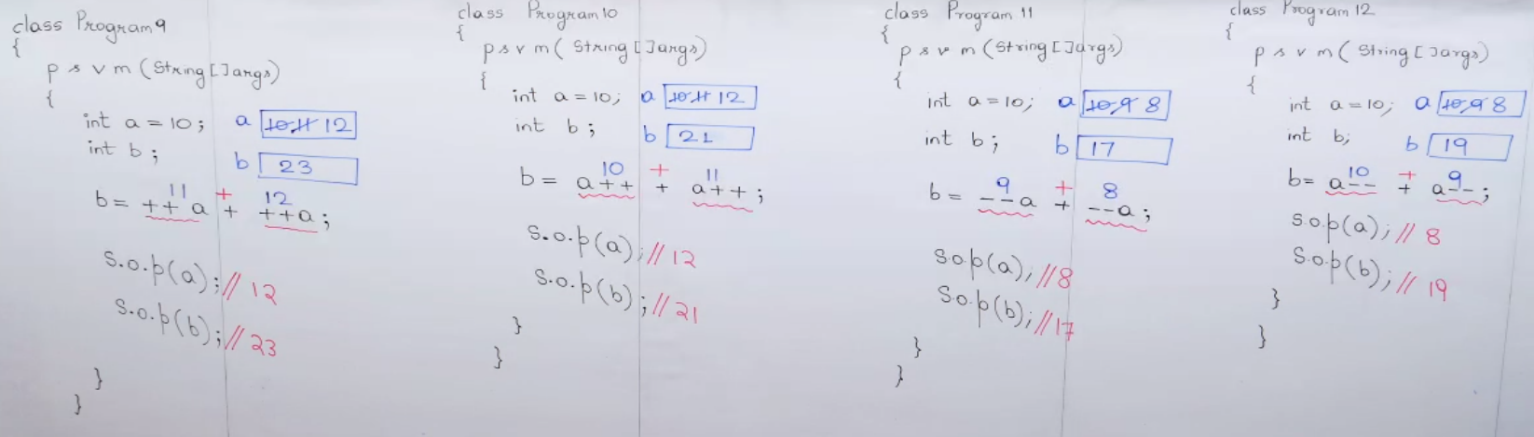 class Program9
{
p s v m (String[]args)
{
int a = 10; a 10 11 12
int b; b 23
11 + 12
b = ++a + ++a;
S.o.p(a); // 12
S.o.p(b); // 23
}
}
class Program10
{
p s v m (String[]args)
{
int a = 10; a 10 11 12
int b; b 21
10 + 11
b = a++ + a++;
S.o.p(a); // 12
S.o.p(b); // 21
}
}
class Program 11
{
p s v m (String[]args)
{
int a = 10; a 10 9 8
int b; b 17
9 + 8
b = --a + --a;
S.o.p(a); // 8
S.o.p(b); // 17
}
}
class Program 12
{
p s v m (String[]args)
{
int a = 10; a 10 9 8
int b; b 19
10 + 9
b = a-- + a--;
S.o.p(a); // 8
S.o.p(b); // 19
}
}